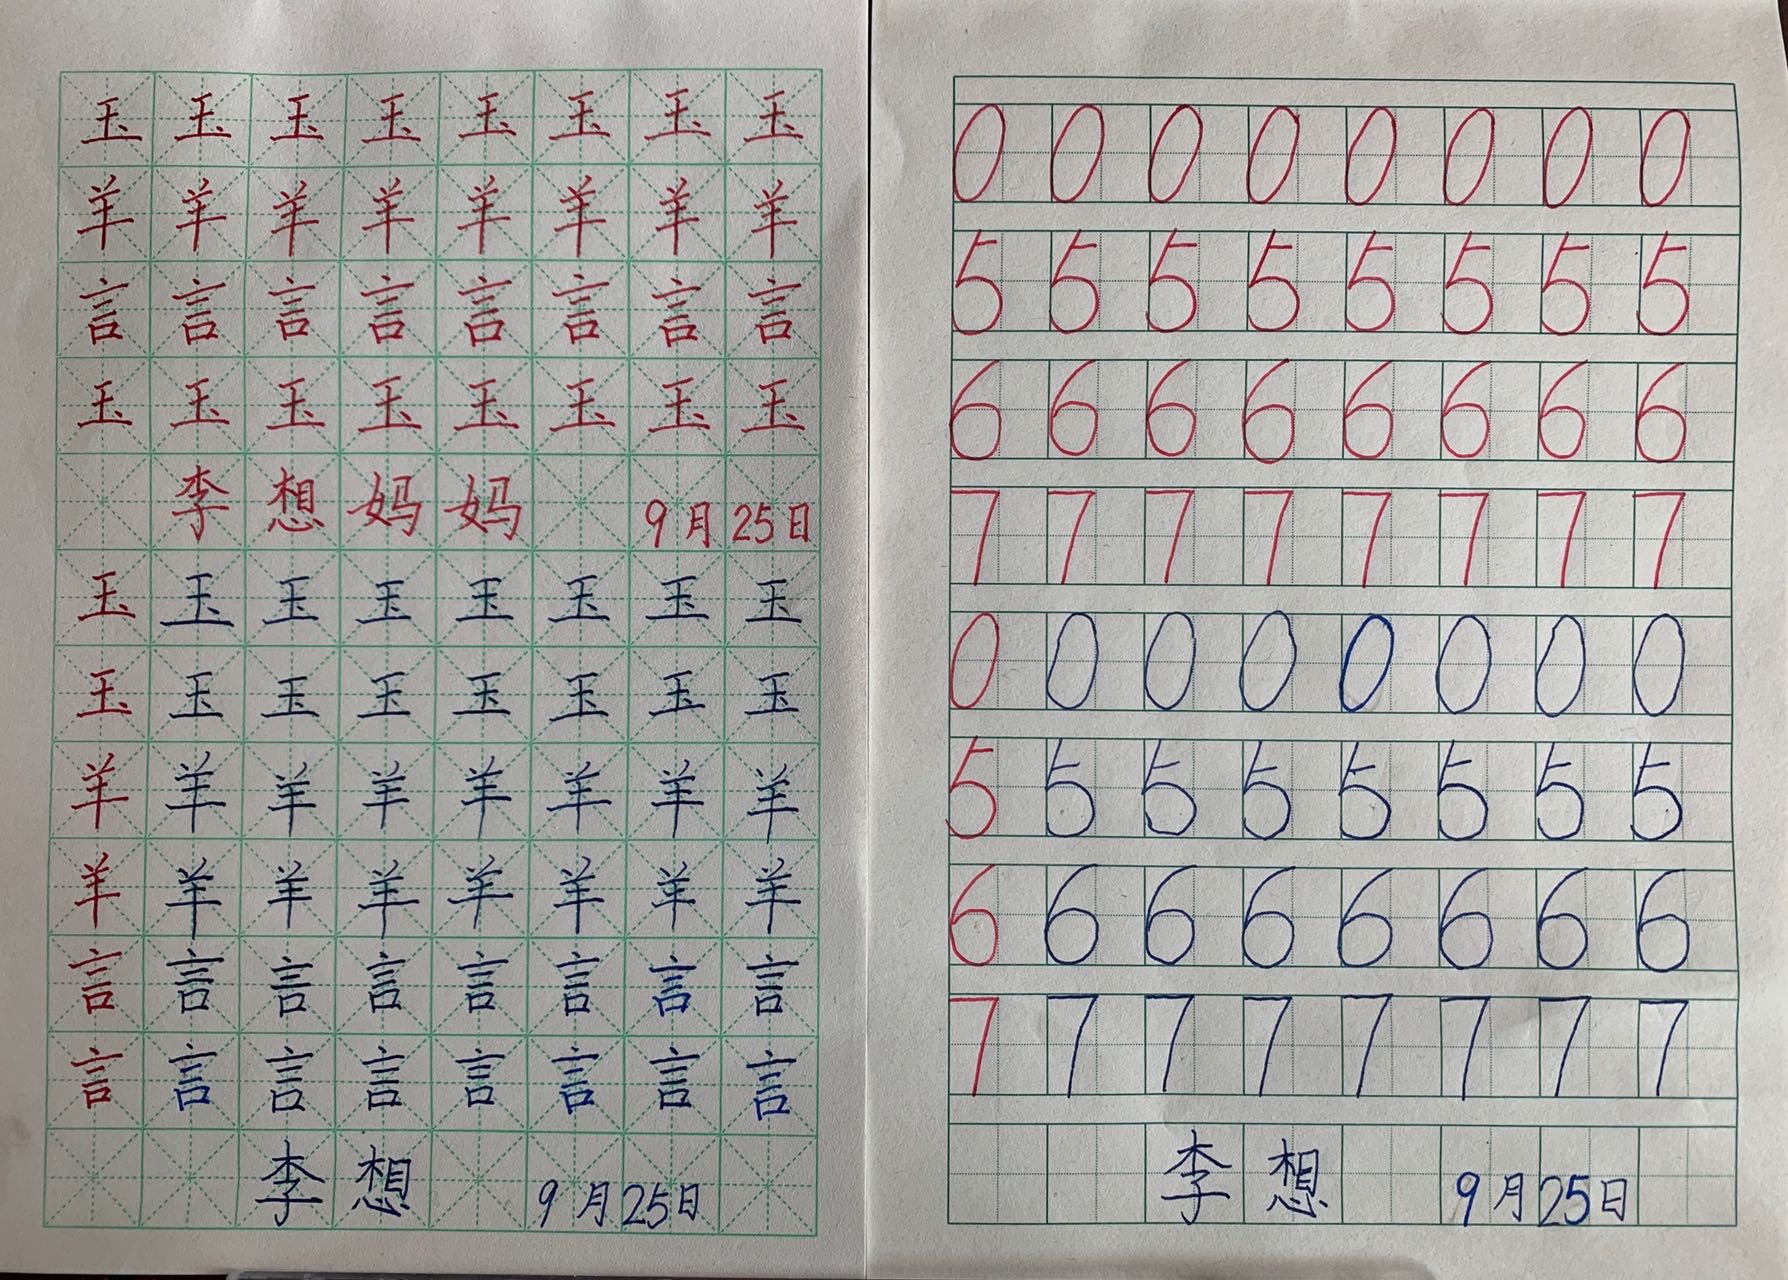 玉玉玉玉玉玉玉玉
羊羊羊羊羊羊羊羊
言言言言言言言言
玉玉玉玉玉玉玉玉
李想妈妈 9月25日
玉玉玉玉玉玉玉玉
玉玉玉玉玉玉玉玉
羊羊羊羊羊羊羊羊
羊羊羊羊羊羊羊羊
言言言言言言言言
言言言言言言言言
李想 9月25日
0 0 0 0 0 0 0 0
5 5 5 5 5 5 5 5
6 6 6 6 6 6 6 6
7 7 7 7 7 7 7 7
0 0 0 0 0 0 0 0
5 5 5 5 5 5 5 5
6 6 6 6 6 6 6 6
7 7 7 7 7 7 7 7
李想 9月25日